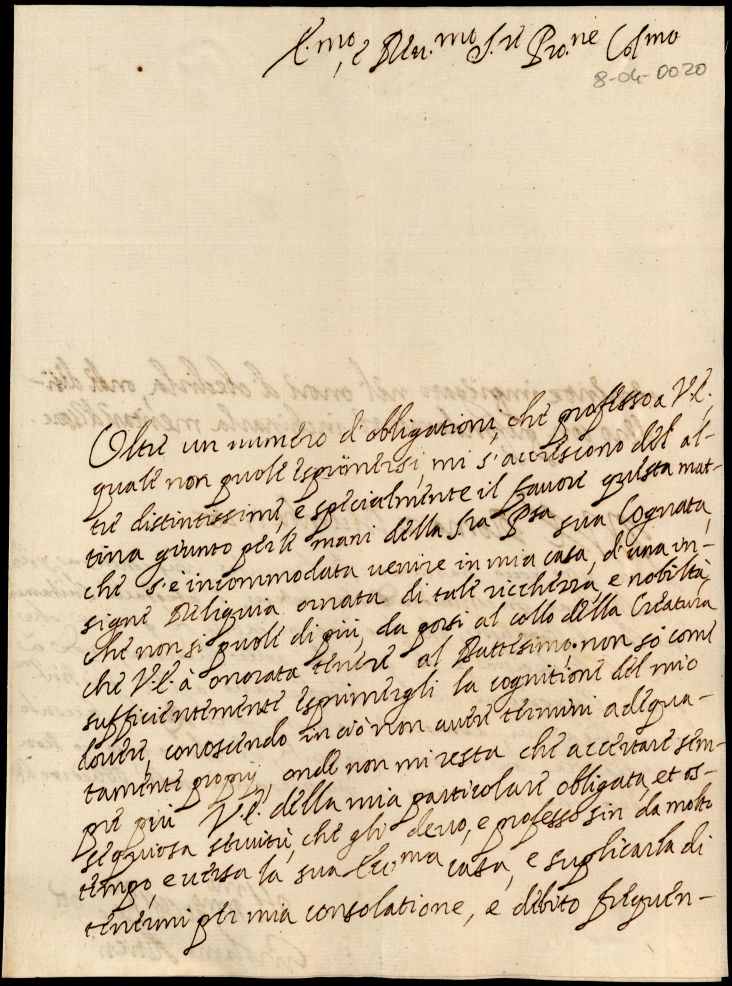 E.mo, e Reu.mo S.re Pro.ne Col.mo
8-04-0020
Oltre un numero d'obligationi, che professo a V.E.,
quale non puole esprimersi, mi s'accrescono del al-
tre distintissime, e specialmente il fauore questa mat-
tina giunto per le mani della S.ra P.sa sua Cognata,
che s'è incommodata uenire in mia casa, d'una in-
signe Reliquia ornata di tale ricchezza, e nobiltà,
che non si puole di più, da porsi al collo della Creatura
che V.E. à onorata tenere al Battesimo; non sò come
sufficientemente esprimergli la cognitione del mio
douere, conoscendo in ciò non auere termini adequa-
tamente proprij, onde non mi resta che accertare sem-
pre più V.E. della mia particolare obligata, et os-
sequiosa seruitù, che gli deuo, e professo sin da molto
tempo, e uersa la sua Ecc.ma casa, e suplicarla di
tenermi per mia consolatione, e debito frequen-